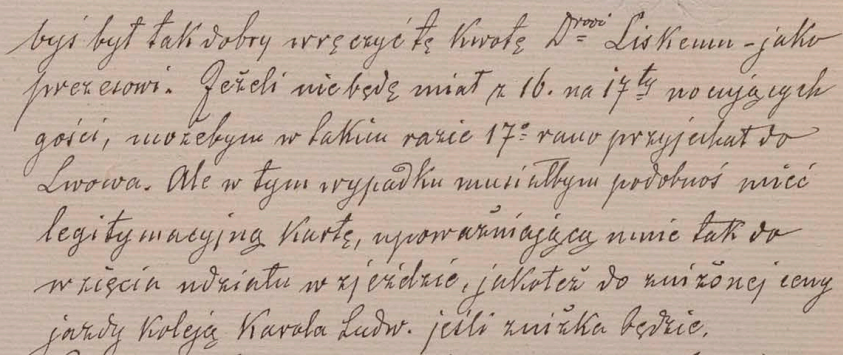 byś był tak dobry wręczyć tę kwotę Drowi Liskemu - jako
prezesowi. Jeżeli nie będę miał z 16. na 17ty nocujących
gości, możebym w takim razie 17o rano przyjechał do
Lwowa. Ale w tym wypadku musiałbym podobnoś mieć
legitymacyjną kartę, upoważniającą mnie tak do
wzięcia udziału w zjeździe, jakoteż do zniżonej ceny
jazdy koleją Karola Ludw. jeśli zniżka będzie.